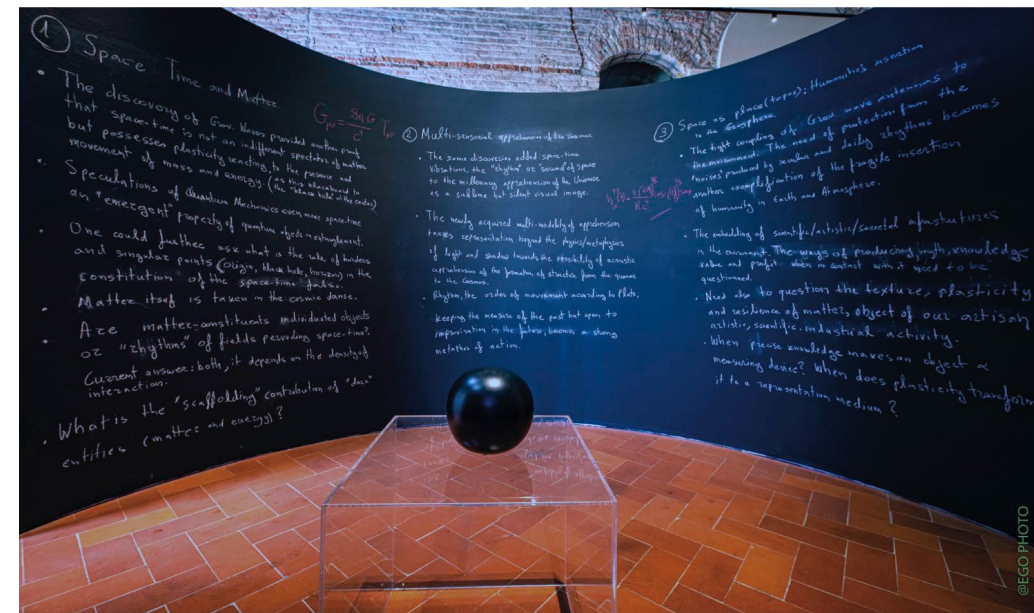 1 Space Time and Matter
• The discovery of Grav. Waves provided another proof
that space-time is not an indifferent spectator of matter
but possesses plasticity reacting to the presence and
movement of mass and energy. (in this blackboard to
the "black hole" in the center)
• Speculations of Quantum Mechanics even more space-time
an "emergent" property of quantum objects in entanglement.
• One could further ask what is the role of borders
and singular points (origin, black hole, horizon) in the
constitution of the space-time fabric.
• Matter itself is taken in the cosmic danse.
• Are matter-constituents individuated objects
or "rhythms" of fields pervading space-time?
Current answer: both, it depends on the density of
interaction.
• What is the "scaffolding" contribution of "dark"
entities (matter and energy)?
Gμν = 8πG/c⁴ Tμν
2 Multi-sensorial apprehension of the cosmos
• The same discoveries added space-time
vibrations, the "rhythm" or "sound" of space
to the millenary apprehension of the Universe
as a sublime but silent visual image.
• The newly acquired multi-modality of apprehension
takes representation beyond the physics/metaphysics
of light and shadow towards the possibility of acoustic
apprehension of the formation of structure from the quarks
to the cosmos.
• Rhythm, the order of movement according to Plato,
keeping the measure of the past but open to
improvisation in the future, becomes a strong
metaphor of action.
3 Space as place (topos): Humanity's insertion
to the Geosphere
• The tight coupling of Grav. wave antennas to
the environment. The need of protection from the
"noises" produced by secular and daily rhythms becomes
another exemplification of the fragile insertion
of humanity in Earth and Atmosphere.
• The embedding of scientific/artistic/societal infrastructures
in the environment. The ways of producing myth, knowledge
value and profit when in contact with it need to be
questioned.
• Need also to question the texture, plasticity
and resilience of matter, object of our artisan
artistic, scientific, industrial activity.
• When precise knowledge makes an object a
measuring device? When does plasticity transform
it to a representation medium?
@EGO PHOTO